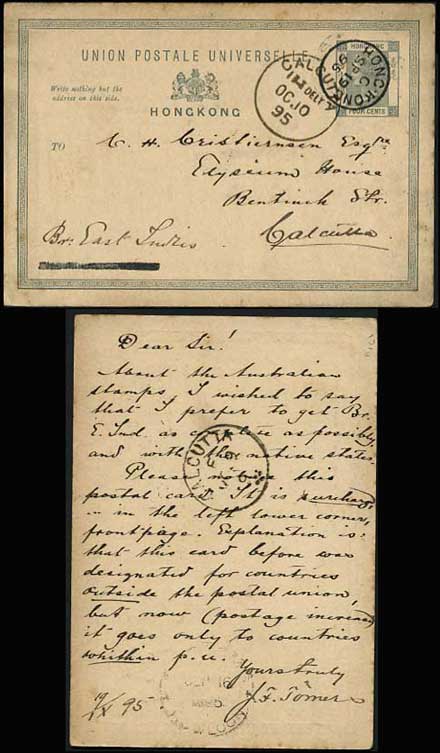 UNION POSTALE UNIVERSELLE
HONGKONG
Write nothing but the
address on this side.
HONGKONG
FOUR CENTS
CALCUTTA
DELY
OC.10
95
HONG-KONG
TO
C. H. Cristiernsen Esqre
Elyseum House
Bentinck Str.
Calcutta
Br. East Indies
Dear Sir!
About the Australian
stamps, I wished to say
that I prefer to get Br.
E. Ind. as as possibly
and with the native states.
Please notice this
postal card. It is surcharg.
in the left lower corner,
frontpage. Explanation is:
that this card before was
designated for countries
outside the postal union,
but now (postage increased)
it goes only to countries
whithin p. u.
Yours truly
J. F. Tömer
19/IX 95.
CALCUTTA